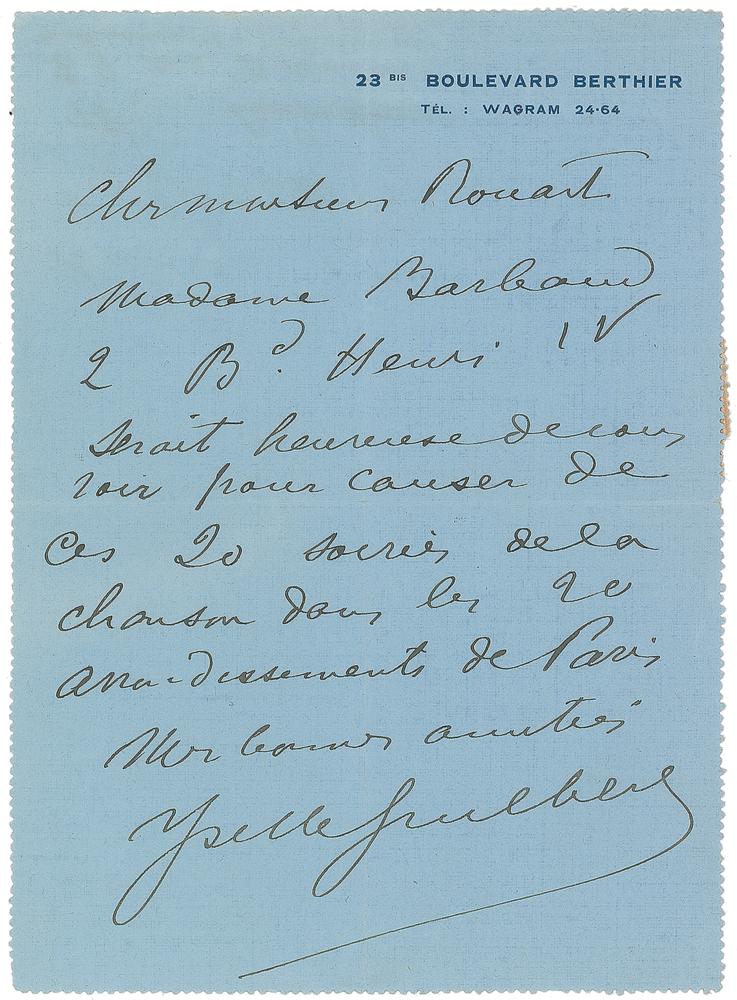 23 BIS BOULEVARD BERTHIER
TÉL. : WAGRAM 24·64
Cher monsieur Rouart
Madame Barbaud
2 Bd. Henri IV
serait heureuse de vous
voir pour causer de
ces 20 soirées de la
chanson dans les 20
arrondissements de Paris
Mes bonnes amitiés
Yvette Guilbert